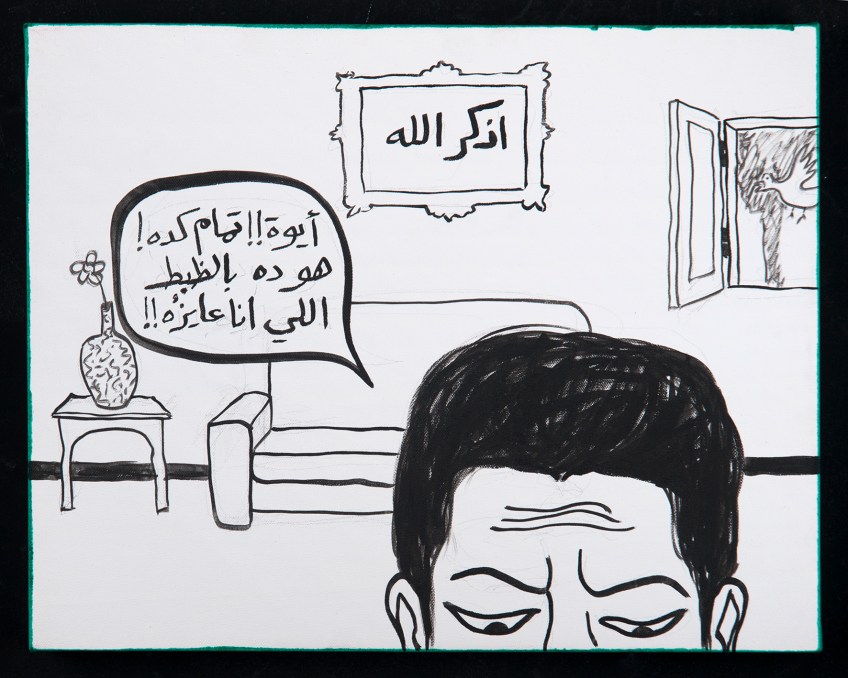 اذكر الله
أيوة!! تمام كده!
هو ده بالظبط
اللي انا عايزُه!!